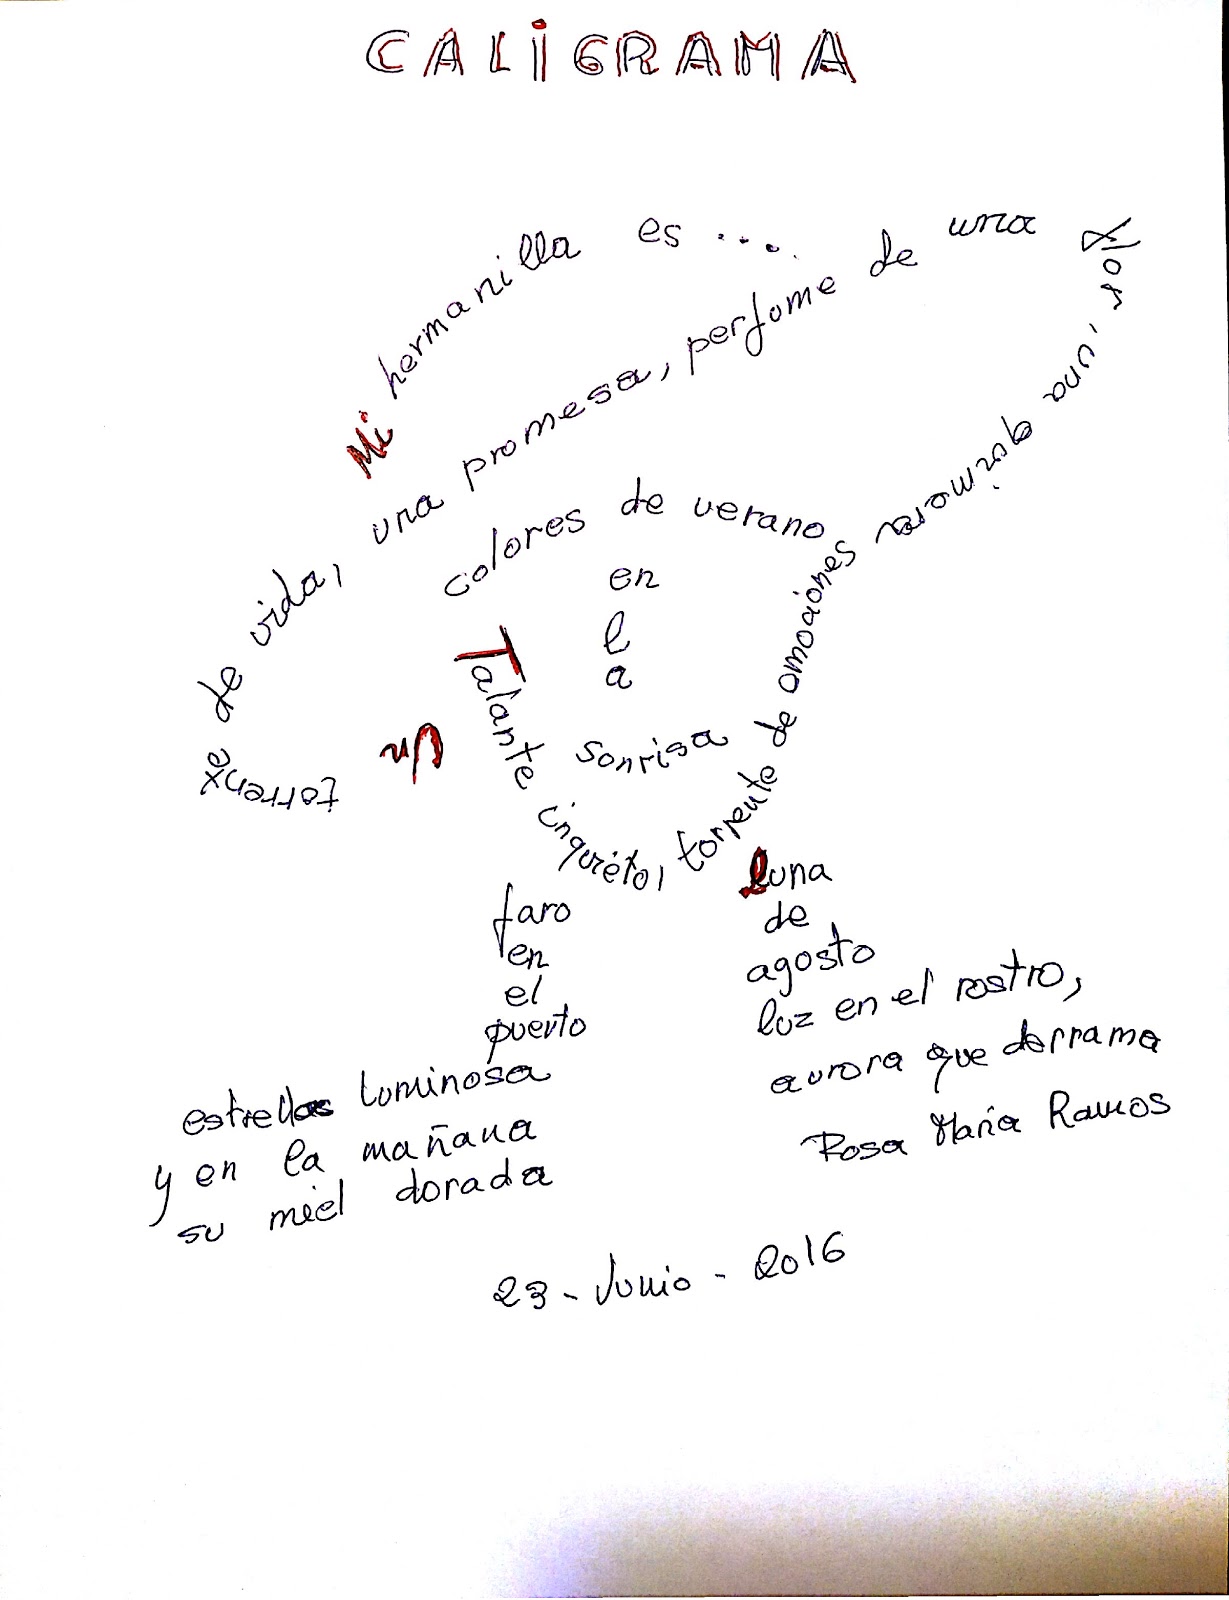 CALiGRAMA
Mi hermanilla es ....
Un torrente de vida, una promesa, perfume de una flor, una quimera
colores de verano
en
l
a
sonrisa
Talante inquieto, torrente de emociones
faro
en
el
puerto
estrellas luminosa
y en la mañana
su miel dorada
luna
de
agosto
luz en el rostro,
aurora que derrama
Rosa María Ramos
23 - Junio - 2016